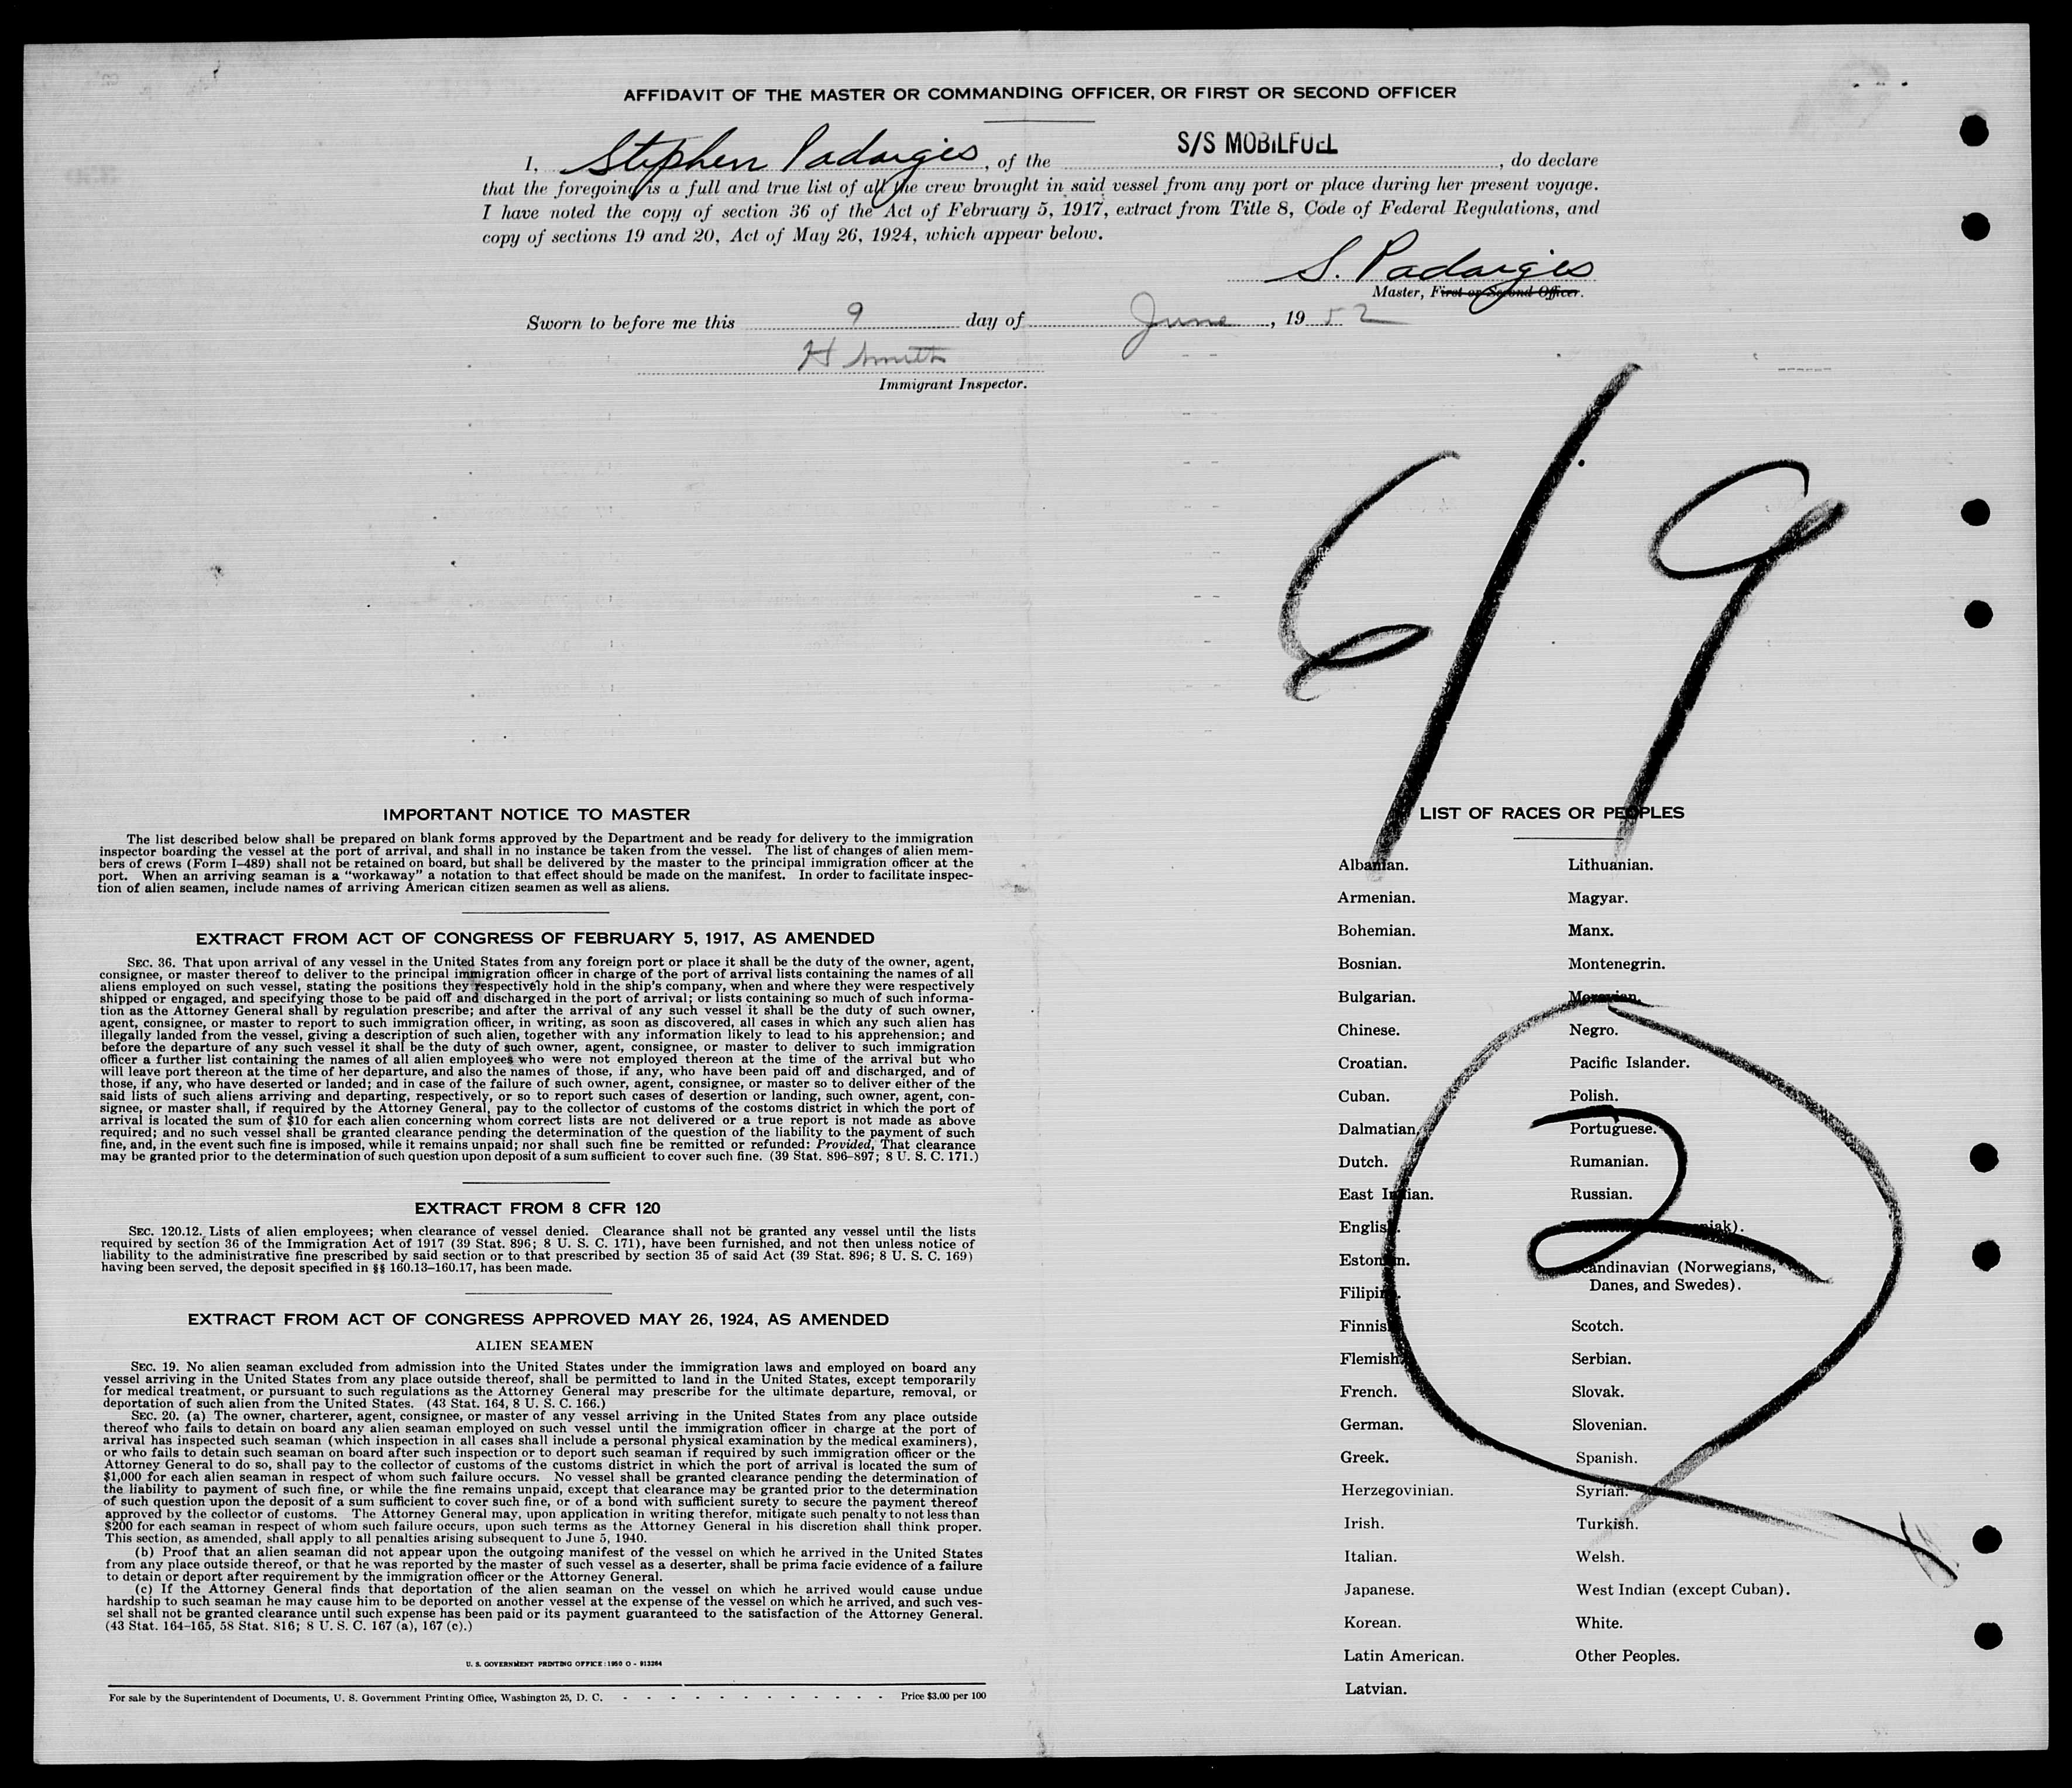 AFFIDAVIT OF THE MASTER OR COMMANDING OFFICER, OR FIRST OR SECOND OFFICER
I, Stephen Padargis, of the S/S MOBILFUEL, do declare
that the foregoing is a full and true list of all the crew brought in said vessel from any port or place during her present voyage.
I have noted the copy of section 36 of the Act of February 5, 1917, extract from Title 8, Code of Federal Regulations, and
copy of sections 19 and 20, Act of May 26, 1924, which appear below.
S. Padargis
Master, First or Second Officer.
Sworn to before me this 9 day of June, 19 52
H Smith
Immigrant Inspector.
6/9
IMPORTANT NOTICE TO MASTER
The list described below shall be prepared on blank forms approved by the Department and be ready for delivery to the immigration
inspector boarding the vessel at the port of arrival, and shall in no instance be taken from the vessel. The list of changes of alien mem-
bers of crews (Form I-489) shall not be retained on board, but shall be delivered by the master to the principal immigration officer at the
port. When an arriving seaman is a "workaway" a notation to that effect should be made on the manifest. In order to facilitate inspec-
tion of alien seamen, include names of arriving American citizen seamen as well as aliens.
EXTRACT FROM ACT OF CONGRESS OF FEBRUARY 5, 1917, AS AMENDED
SEC. 36. That upon arrival of any vessel in the United States from any foreign port or place it shall be the duty of the owner, agent,
consignee, or master thereof to deliver to the principal immigration officer in charge of the port of arrival lists containing the names of all
aliens employed on such vessel, stating the positions they respectively hold in the ship's company, when and where they were respectively
shipped or engaged, and specifying those to be paid off and discharged in the port of arrival; or lists containing so much of such informa-
tion as the Attorney General shall by regulation prescribe; and after the arrival of any such vessel it shall be the duty of such owner,
agent, consignee, or master to report to such immigration officer, in writing, as soon as discovered, all cases in which any such alien has
illegally landed from the vessel, giving a description of such alien, together with any information likely to lead to his apprehension; and
before the departure of any such vessel it shall be the duty of such owner, agent, consignee, or master to deliver to such immigration
officer a further list containing the names of all alien employees who were not employed thereon at the time of the arrival but who
will leave port thereon at the time of her departure, and also the names of those, if any, who have been paid off and discharged, and of
those, if any, who have deserted or landed; and in case of the failure of such owner, agent, consignee, or master so to deliver either of the
said lists of such aliens arriving and departing, respectively, or so to report such cases of desertion or landing, such owner, agent, con-
signee, or master shall, if required by the Attorney General, pay to the collector of customs of the costoms district in which the port of
arrival is located the sum of $10 for each alien concerning whom correct lists are not delivered or a true report is not made as above
required; and no such vessel shall be granted clearance pending the determination of the question of the liability to the payment of such
fine, and, in the event such fine is imposed, while it remains unpaid; nor shall such fine be remitted or refunded: Provided, That clearance
may be granted prior to the determination of such question upon deposit of a sum sufficient to cover such fine. (39 Stat. 896-897; 8 U. S. C. 171.)
EXTRACT FROM 8 CFR 120
SEC. 120.12. Lists of alien employees; when clearance of vessel denied. Clearance shall not be granted any vessel until the lists
required by section 36 of the Immigration Act of 1917 (39 Stat. 896; 8 U. S. C. 171), have been furnished, and not then unless notice of
liability to the administrative fine prescribed by said section or to that prescribed by section 35 of said Act (39 Stat. 896; 8 U. S. C. 169)
having been served, the deposit specified in §§ 160.13-160.17, has been made.
EXTRACT FROM ACT OF CONGRESS APPROVED MAY 26, 1924, AS AMENDED
ALIEN SEAMEN
SEC. 19. No alien seaman excluded from admission into the United States under the immigration laws and employed on board any
vessel arriving in the United States from any place outside thereof, shall be permitted to land in the United States, except temporarily
for medical treatment, or pursuant to such regulations as the Attorney General may prescribe for the ultimate departure, removal, or
deportation of such alien from the United States. (43 Stat. 164, 8 U. S. C. 166.)
SEC. 20. (a) The owner, charterer, agent, consignee, or master of any vessel arriving in the United States from any place outside
thereof who fails to detain on board any alien seaman employed on such vessel until the immigration officer in charge at the port of
arrival has inspected such seaman (which inspection in all cases shall include a personal physical examination by the medical examiners),
or who fails to detain such seaman on board after such inspection or to deport such seaman if required by such immigration officer or the
Attorney General to do so, shall pay to the collector of customs of the customs district in which the port of arrival is located the sum of
$1,000 for each alien seaman in respect of whom such failure occurs. No vessel shall be granted clearance pending the determination of
the liability to payment of such fine, or while the fine remains unpaid, except that clearance may be granted prior to the determination
of such question upon the deposit of a sum sufficient to cover such fine, or of a bond with sufficient surety to secure the payment thereof
approved by the collector of customs. The Attorney General may, upon application in writing therefor, mitigate such penalty to not less than
$200 for each seaman in respect of whom such failure occurs, upon such terms as the Attorney General in his discretion shall think proper.
This section, as amended, shall apply to all penalties arising subsequent to June 5, 1940.
(b) Proof that an alien seaman did not appear upon the outgoing manifest of the vessel on which he arrived in the United States
from any place outside thereof, or that he was reported by the master of such vessel as a deserter, shall be prima facie evidence of a failure
to detain or deport after requirement by the immigration officer or the Attorney General.
(c) If the Attorney General finds that deportation of the alien seaman on the vessel on which he arrived would cause undue
hardship to such seaman he may cause him to be deported on another vessel at the expense of the vessel on which he arrived, and such ves-
sel shall not be granted clearance until such expense has been paid or its payment guaranteed to the satisfaction of the Attorney General.
(43 Stat. 164-165, 58 Stat. 816; 8 U. S. C. 167 (a), 167 (c).)
U. S. GOVERNMENT PRINTING OFFICE: 1950 O - 913264
For sale by the Superintendent of Documents, U. S. Government Printing Office, Washington 25, D. C. - - - - - - - - - - - - Price $3.00 per 100
LIST OF RACES OR PEOPLES
Albanian.
Armenian.
Bohemian.
Bosnian.
Bulgarian.
Chinese.
Croatian.
Cuban.
Dalmatian.
Dutch.
East Indian.
English.
Estonian.
Filipino.
Finnish.
Flemish.
French.
German.
Greek.
Herzegovinian.
Irish.
Italian.
Japanese.
Korean.
Latin American.
Latvian.
Lithuanian.
Magyar.
Manx.
Montenegrin.
Moravian.
Negro.
Pacific Islander.
Polish.
Portuguese.
Rumanian.
Russian.
Scandinavian (Norwegians,
Danes, and Swedes).
Scotch.
Serbian.
Slovak.
Slovenian.
Spanish.
Syrian.
Turkish.
Welsh.
West Indian (except Cuban).
White.
Other Peoples.
2